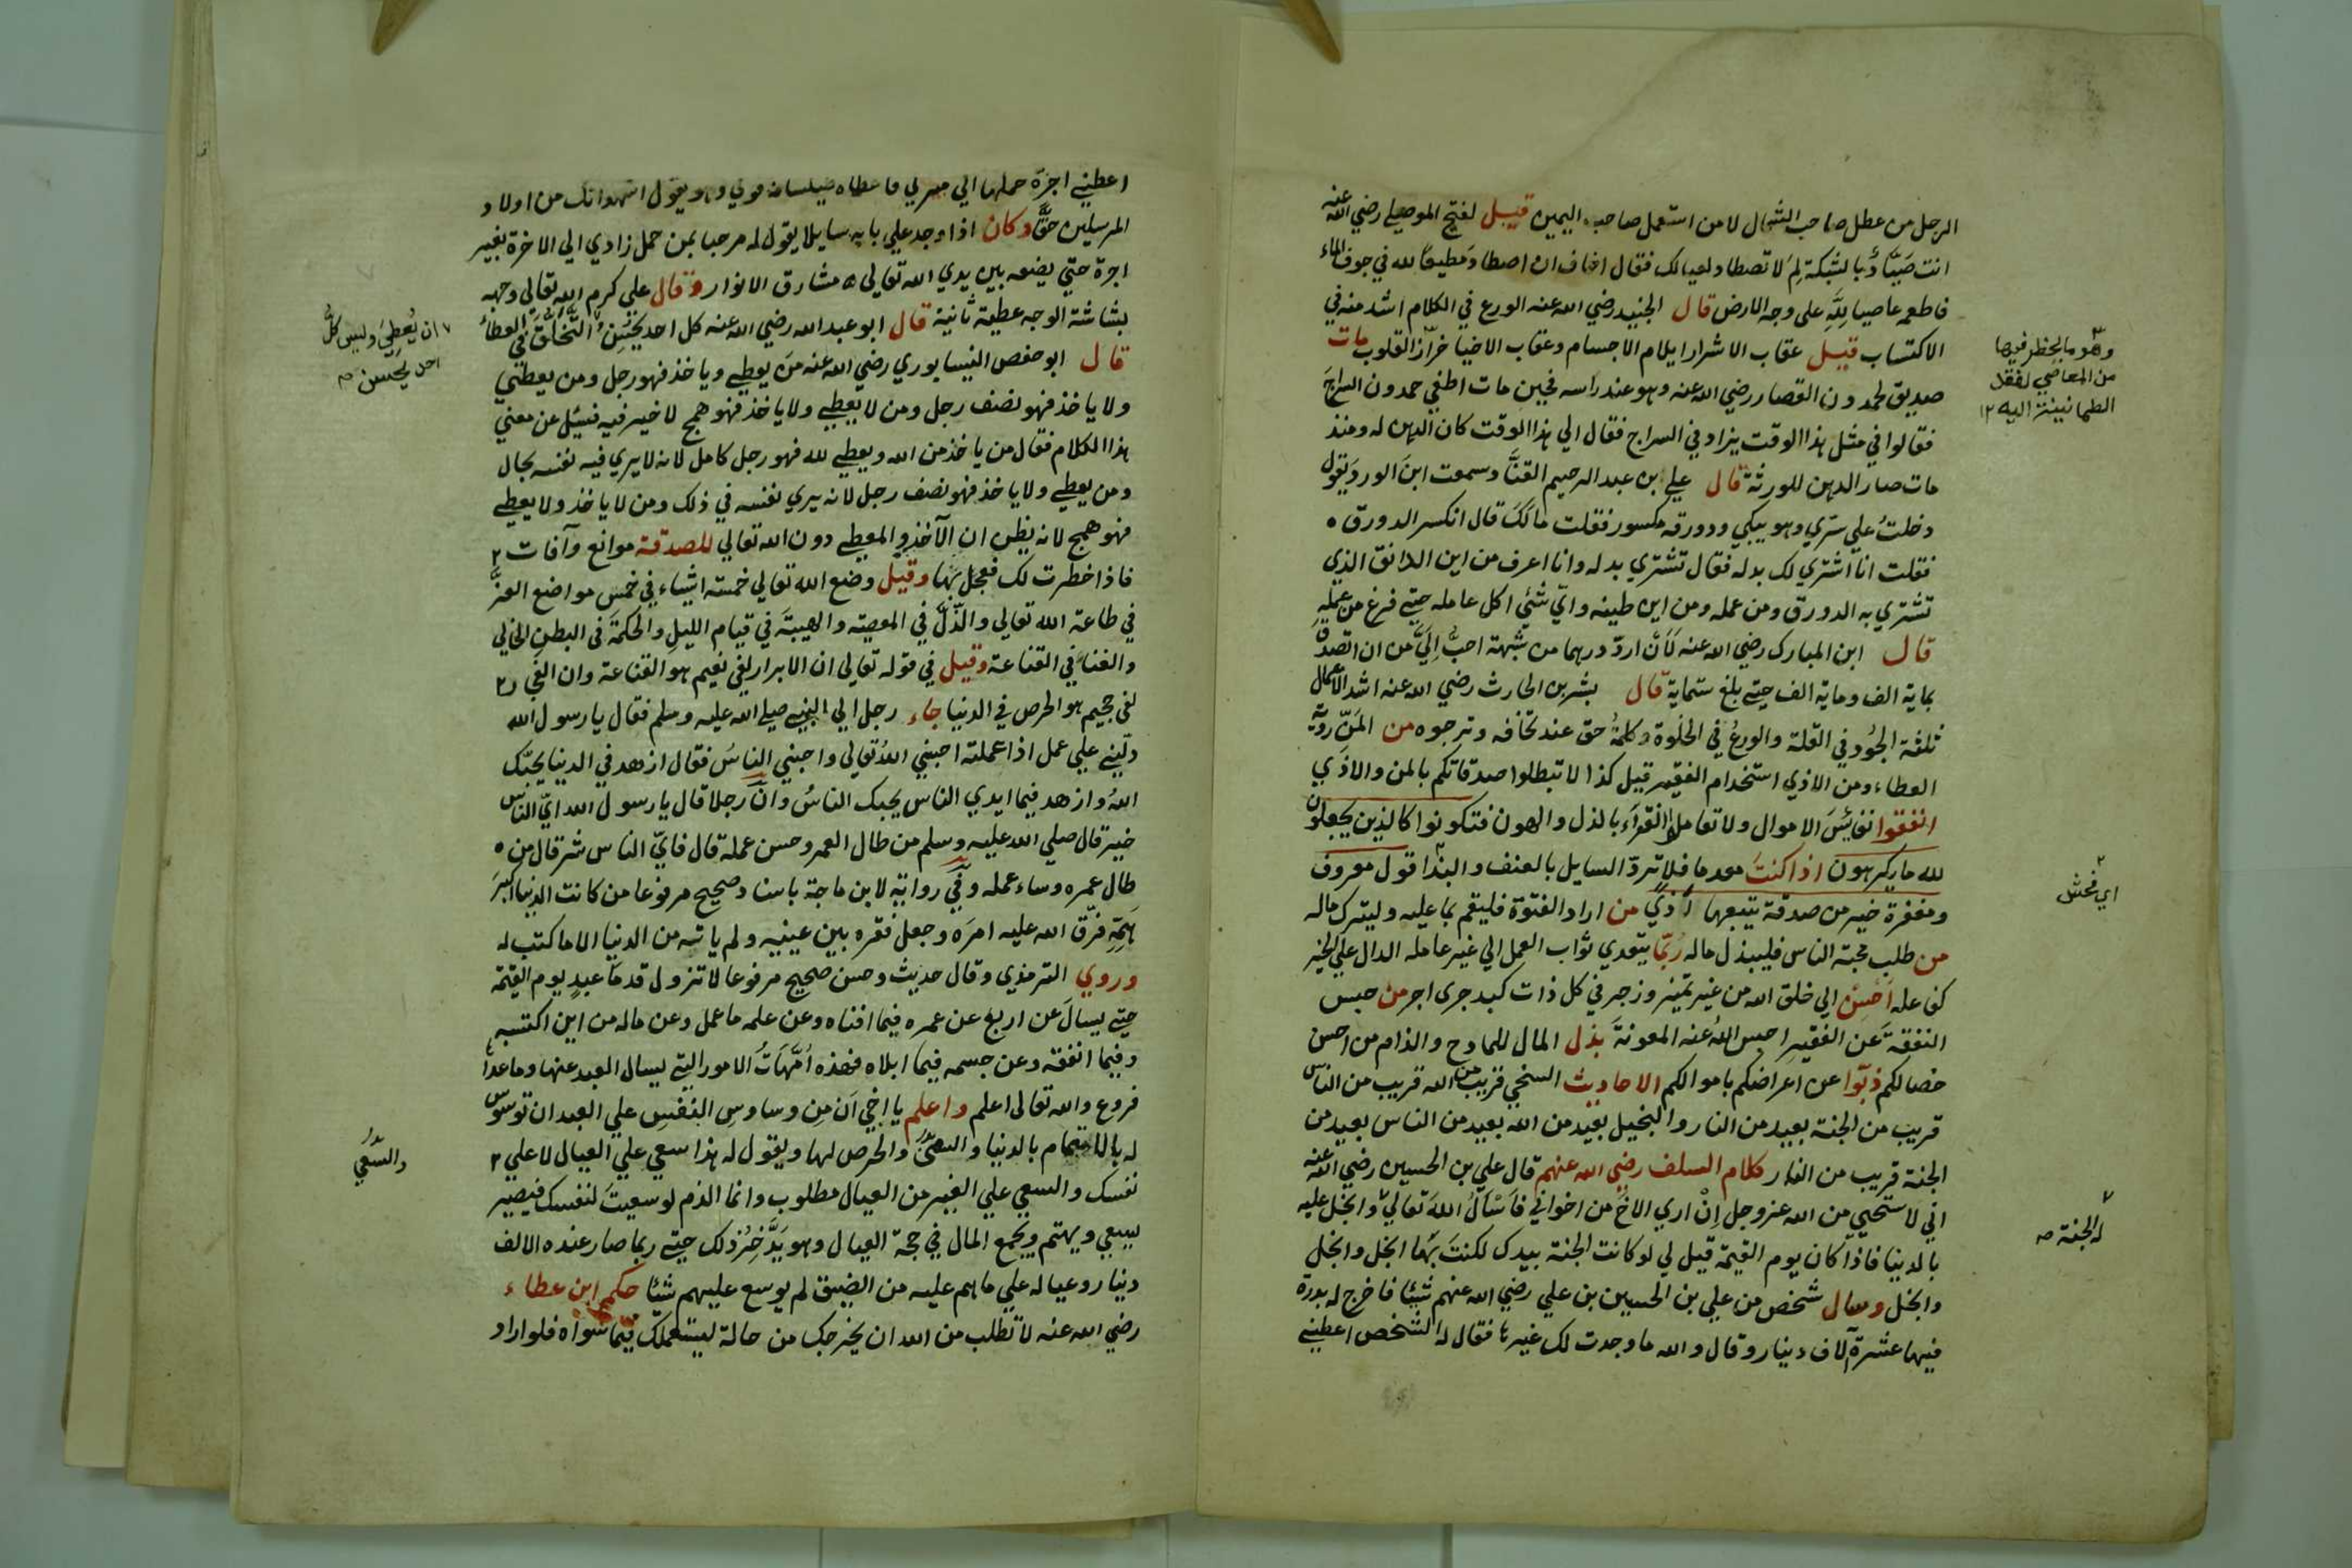 الرجل من عطل صاحب الشمال لا من استعمل صاحب اليمين قيل لفتح الموصلي رضي الله عنه
انت صَيَّادٌ بالشبكة لِمَ لا تصطاد لعيالك فقال اخاف ان اصطاد مُطيعًا لله في جوف الماء
فاطعمه عاصيا لِلّٰهِ على وجه الارض قال الجنيد رضي الله عنه الورع في الكلام اشد منه في
الاكتساب قيل عقاب الاشرار ايلام الاجسام وعقاب الاخيار القلوب مات
صديق لحمدون القصار رضي الله عنه وهو عند راسه فحين مات اطفي حمدون السراج
فقالوا في مثل هذا الوقت يزاد في السراج فقال الي هذا الوقت كان الدهن له ومنذ
مات صار الدهن للورثة قال علي بن عبد الرحيم القنَّاد سمعت ابنَ الورد يقول
دخلتُ علي سَري وهو يبكي ودورقه مكسور فقلت مالَكَ قال انكسر الدورق
فقلت انا اشتري لك بدله فقال تشتري بدله وانا اعرف من اين الدانق الذي
تشتري به الدورق ومن عمله ومن اين طينه وايّ شئي اكل عامله حتي فرغ من عملِهِ
قال ابن المبارك رضي الله عنه لَأَن اردّ درهما من شبهة احبُّ اِلَيَّ من ان اتصدق
بماية الف وماية الف حتي بلغ ستماية قال بشر بن الحارث رضي الله عنه اشد الاعمال
ثلثة الجُود في القلة والورعُ في الخلوة وكلمةُ حق عند من تخافه وترجوه من المَنّ روية
العطاء ومن الاذي استخدام الفقير قيل كذا لا تبطلوا صدقاتكم بالمن والاذي
انفقوا نفايسَ الاموال ولا تعاملوا الفقرآءَ بالذل والهون فتكونوا كالذين يجعلون
لله ما يكرهون اذا كنتَ معدما فلا تردّ السايل بالعنف والبذا قول معروف
ومغفرة خير من صدقة يتبعها اذي من اراد الفتوة فليقم بما عليه وليترك ماله
من طلب محبة الناس فليبذل ماله رُبّما يتعدي ثواب العمل الي غير عامله الدال علي الخير
كفاعله اَحسِن الي خلق الله من غير تميز وزجر في كل ذات كبد حري اجر من حبس
النفقةَ عن الفقير احبس اللهُ عنه المعونةَ بذل المال للمادح والذام من احسن
خصالكم ذبّوا عن اعراضكم باموالكم الاحاديث السخي قريب من الله قريب من الناس
قريب من الجنة بعيد من النار والبخيل بعيد من الله بعيد من الناس بعيد من
الجنة قريب من النار كلام السلف رضي الله عنهم قال علي بن الحسين رضي الله عنه
اني لاستحيي من الله عز وجل اِنْ اري الاخَ من اخواني فاَسْالُ اللهَ تعالي وابخل عليه
بالدنيا فاذا كان يوم القيمة قيل لي لو كانت الجنة بيدك لكنتَ بَهَا ابخل وابخل
وابخل وسال شخص من علي بن الحسين بن علي رضي الله عنهم شيئًا فاخرج له بدرة
فيها عشرة آلاف دينار وقال والله ما وجدت لك غيرها فقال له الشخص اعطيني
من المعاصي
الطمانينة اليه ١٢
اي فحش
له الجنة
اعطيني اجرة حملها الي منزلي فاعطاه طيلسانه وهو يقول اشهد انك من اولاد
المرسلين حقًّا وكان اذا وجد علي بابه سايلا يقول له مرحبا بمن حمل زادي الي الاخرة بغير
اجرة حتي يضعه بين يدي الله تعالي مشارق الانوار وقال علي كرم الله تعالي وجهه
بشاشة الوجه عطية ثانية قال ابو عبد الله رضي الله عنه كل احد يحسن التخلق في العطاء
قال ابو حفص النيسابوري رضي الله عنه مَن يعطي وياخذ فهو رجل ومن يعطي
ولا ياخذ فهو نصف رجل ومن لا يعطي ولا ياخذ فهو همج لا خير فيه فسئل عن معني
هذا الكلام فقال من ياخذ من الله ويعطي لله فهو رجل كامل لانه لا يري فيه نفسه بحال
ومن يعطي ولا ياخذ فهو نصف رجل لانه يري نفسه في ذلك ومن لا ياخذ ولا يعطي
فهو همج لانه يظن ان الآخذ والمعطي دون الله تعالي للصدقة موانع وآفات
فاذا خطرت لك فعجل بها وقيل وضع الله تعالي خمسة اشياء في خمس مواضع العزَّ
في طاعة الله تعالي والذّلَّ في المعصية والهيبةَ في قيام الليل والحكمةَ في البطن الخالي
والغناءَ في القناعة وقيل في قوله تعالي ان الابرار لفي نعيم هو القناعة وان الفجار
لفي جحيم هو الحرص في الدنيا جاء رجل الي النبي صلي الله عليه وسلم فقال يا رسول الله
دلّيني علي عمل اذا عملته احبني اللهُ تعالي واحبني الناسُ فقال ازهد في الدنيا يحبّك
اللهُ وازهد فيما ايدي الناس يحبك الناسُ وانّ رجلا قال يا رسول الله ايّ الناس
خير قال صلي الله عليه وسلم من طال العمر وحسن عملة قال فايّ الناس شر قال من
طال عمره وساء عمله وفي رواية لابن ماجة باسناد صحيح مرفوعا من كانت الدنيا اكبرَ
هَمِّهِ فرّق الله عليه امرَه وجعل فقره بين عينيه ولم ياته من الدنيا الا ما كتب له
وروي الترمذي وقال حديث وحسن صحيح مرفوعا لا تزول قدمَا عبدٍ يوم القيمة
حتي يسالَ عن اربع عن عمره فيما افناه وعن علمه ما عمل وعن ماله من اين اكتسبه
وفيما انفقه وعن جسمه فيما ابلاه فهذه اُمَّهاتُ الامور التي يسال العبد عنها وما عداها
فروع والله تعالي اعلم واعلم يا اخي اَن مِن وساوسِ النفسِ علي العبد ان توسوس
له بالاهتمام بالدنيا والحرص لها ويقول له هذا سعي علي العيال لا علي
نفسك والسعي علي الغير من العيال مطلوب وانما الذم لو سعيتَ لنفسك فيصير
يسعي ويهتم ويجمع المال في حجة العيال وهو يَدَّخِرُ ذلك حتي ربما صار عنده الالف
دينار وعياله علي ما هم عليه من الضيق لم يوسع عليهم شيئا حكم ابن عطاء
رضي الله عنه لا تطلب من الله ان يخرجك من حالة ليستعملك فيما سواه فلو اراد
ان يُعطِيَ وليس كلُّ
احد يحسن
والسَّعْي